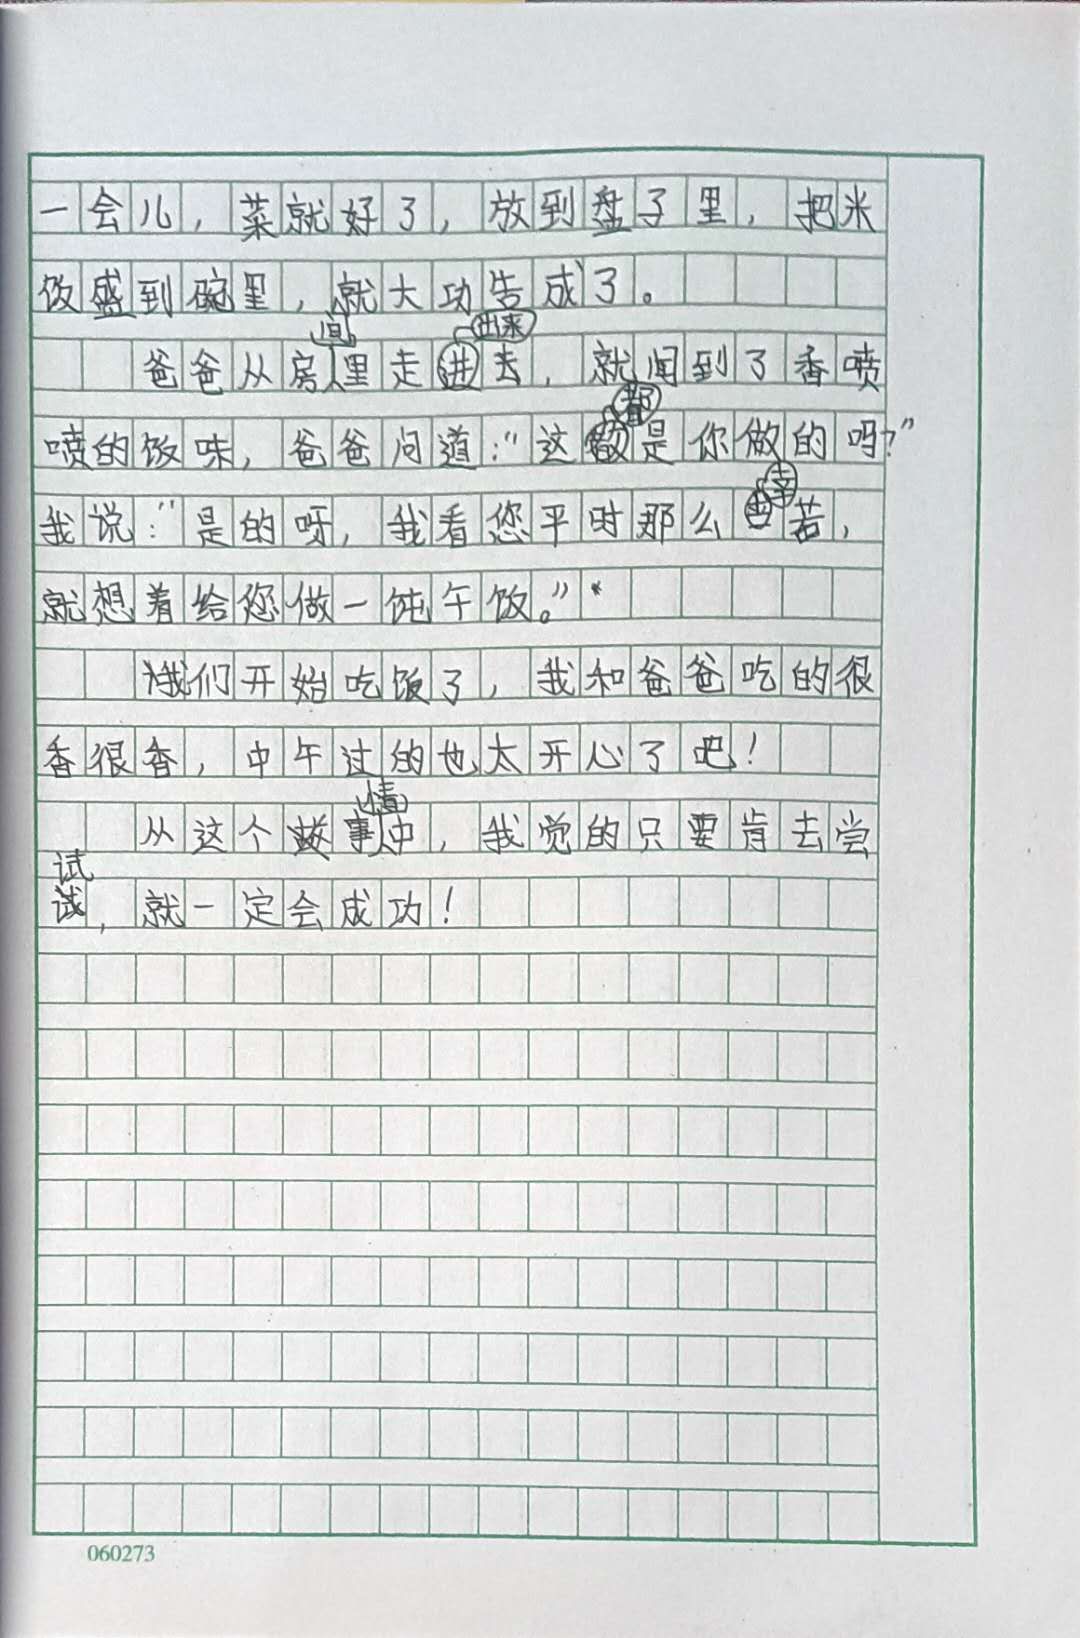 一会儿，菜就好了，放到盘子里，把米
饭盛到碗里，就大功告成了。
爸爸从房间里走出来，就闻到了香喷
喷的饭味，爸爸问道：“这都是你做的吗？”
我说：“是的呀，我看您平时那么辛苦，
就想着给您做一饨午饭。”
我们开始吃饭了，我和爸爸吃的很
香很香，中午过的也太开心了吧！
从这个故事情中，我觉的只要肯去尝
试试，就一定会成功！
060273